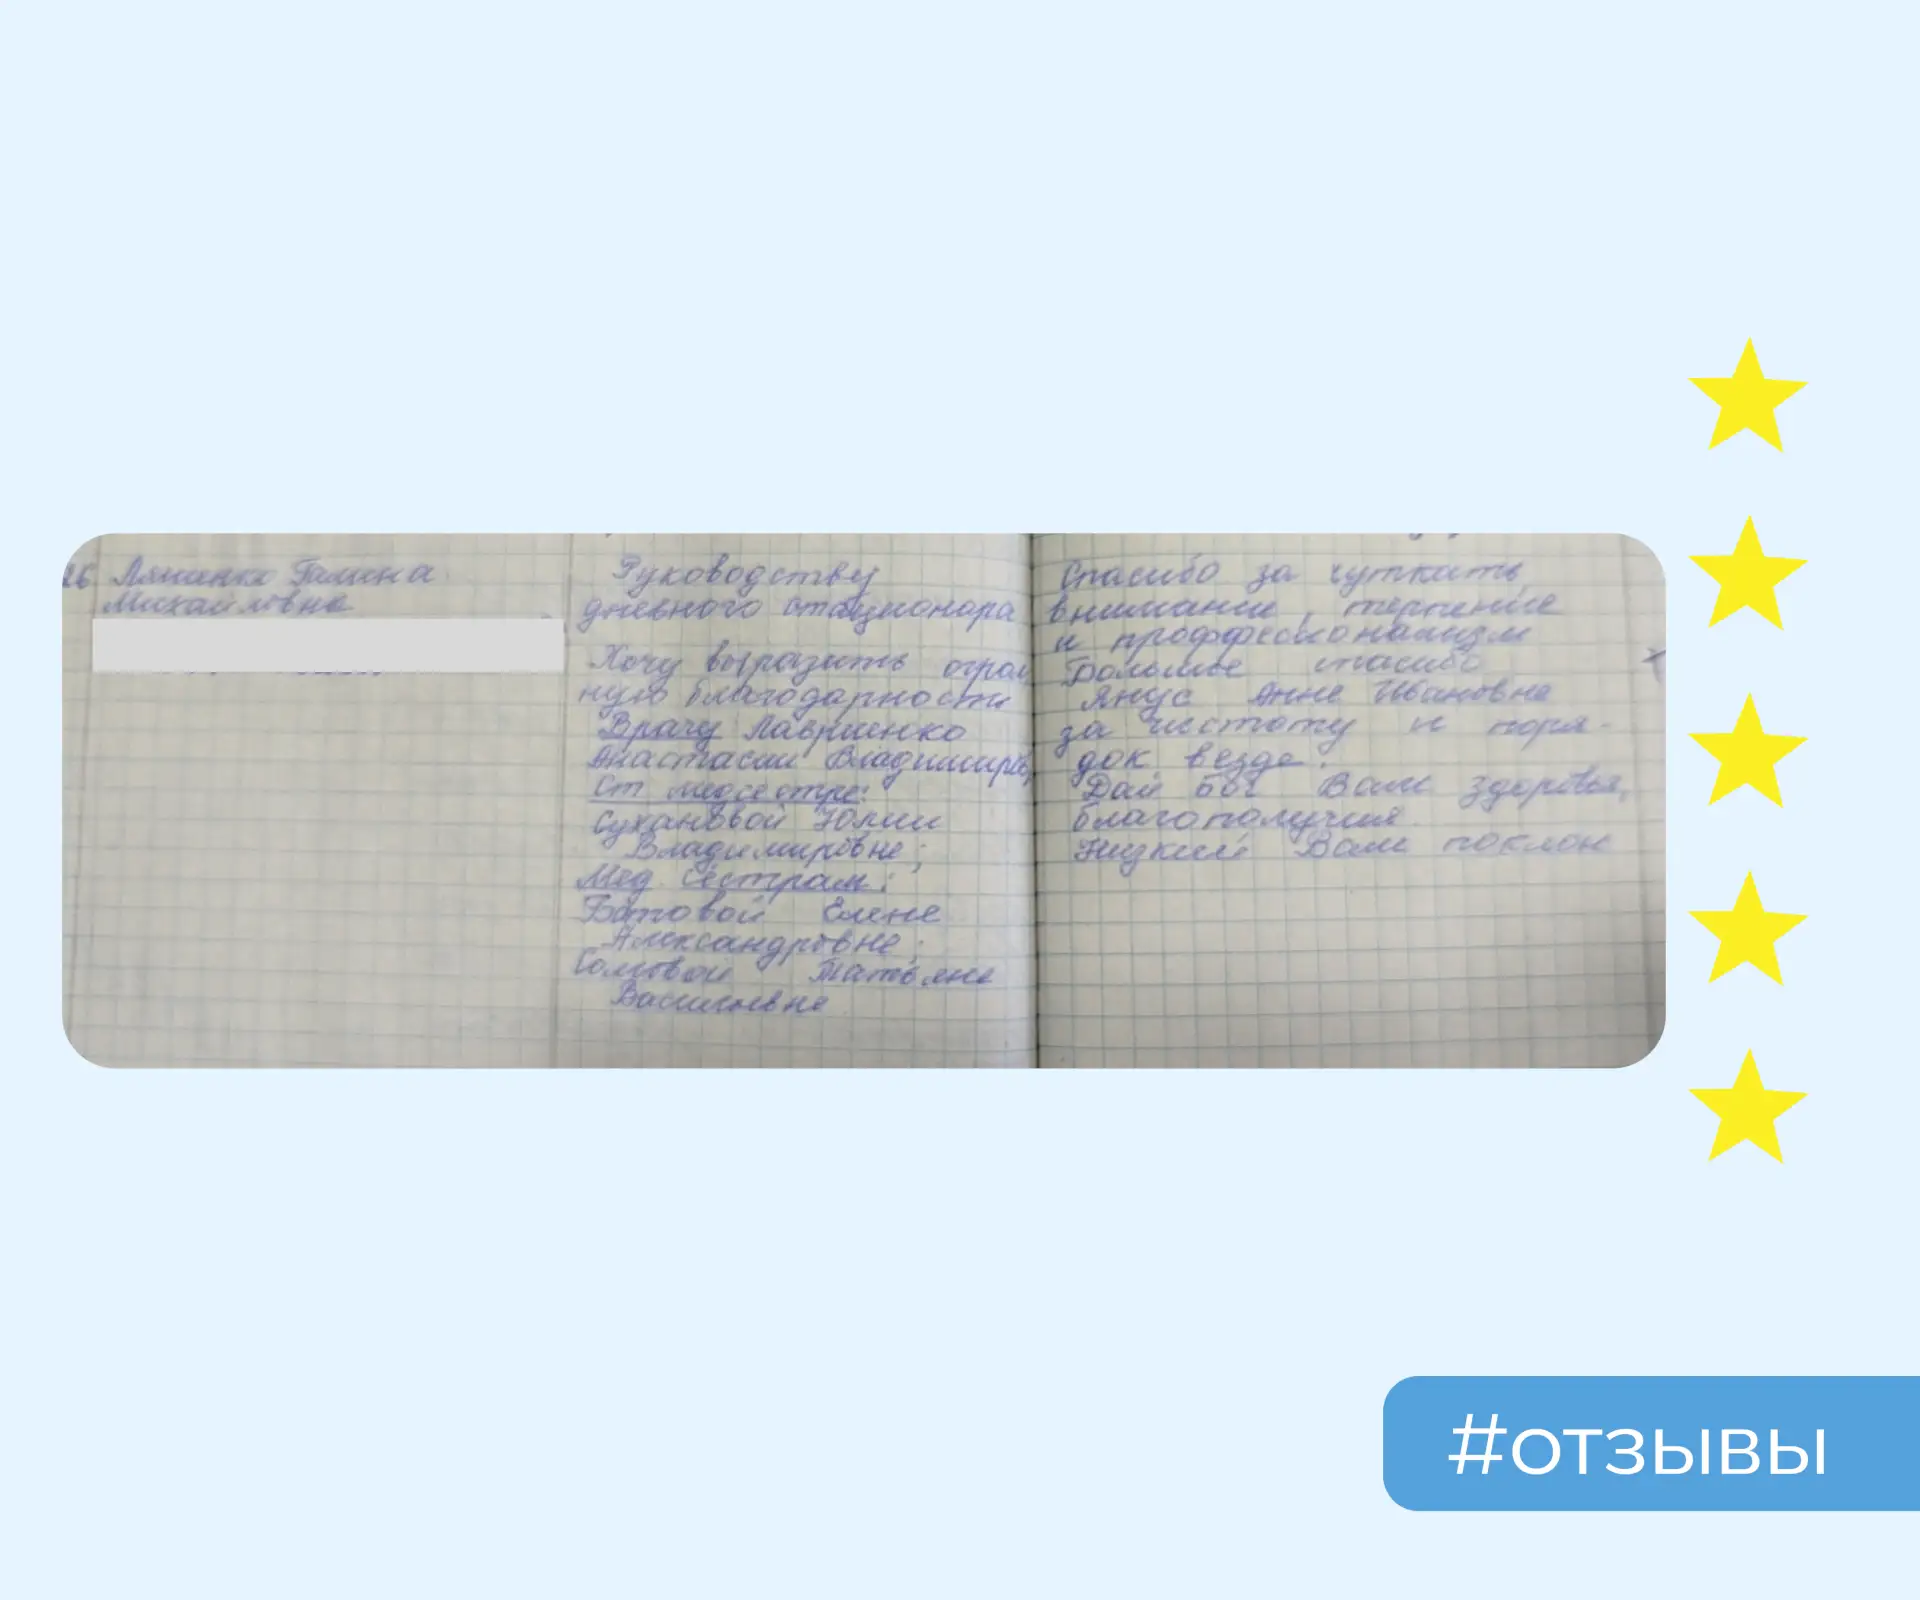 26 Ляшенко Галина
Михайловна
Руководству
дневного стационара
Хочу выразить огром
ную благодарность
Врачу Лавриненко
Анастасии Владимиров
Ст медсестре:
Сухановой Юлии
Владимировне;
Мед. сестрам:
Батовой Елене
Александровне;
Татьяне
Васильевне
Спасибо за чуткить,
внимание, терпение
и проффесионализм
Большое спасибо
Янус Анне Ивановне
за чистоту и поря-
док везде.
Дай бог Вам здоровья,
благополучия.
Низкий Вам поклон
#отзывы